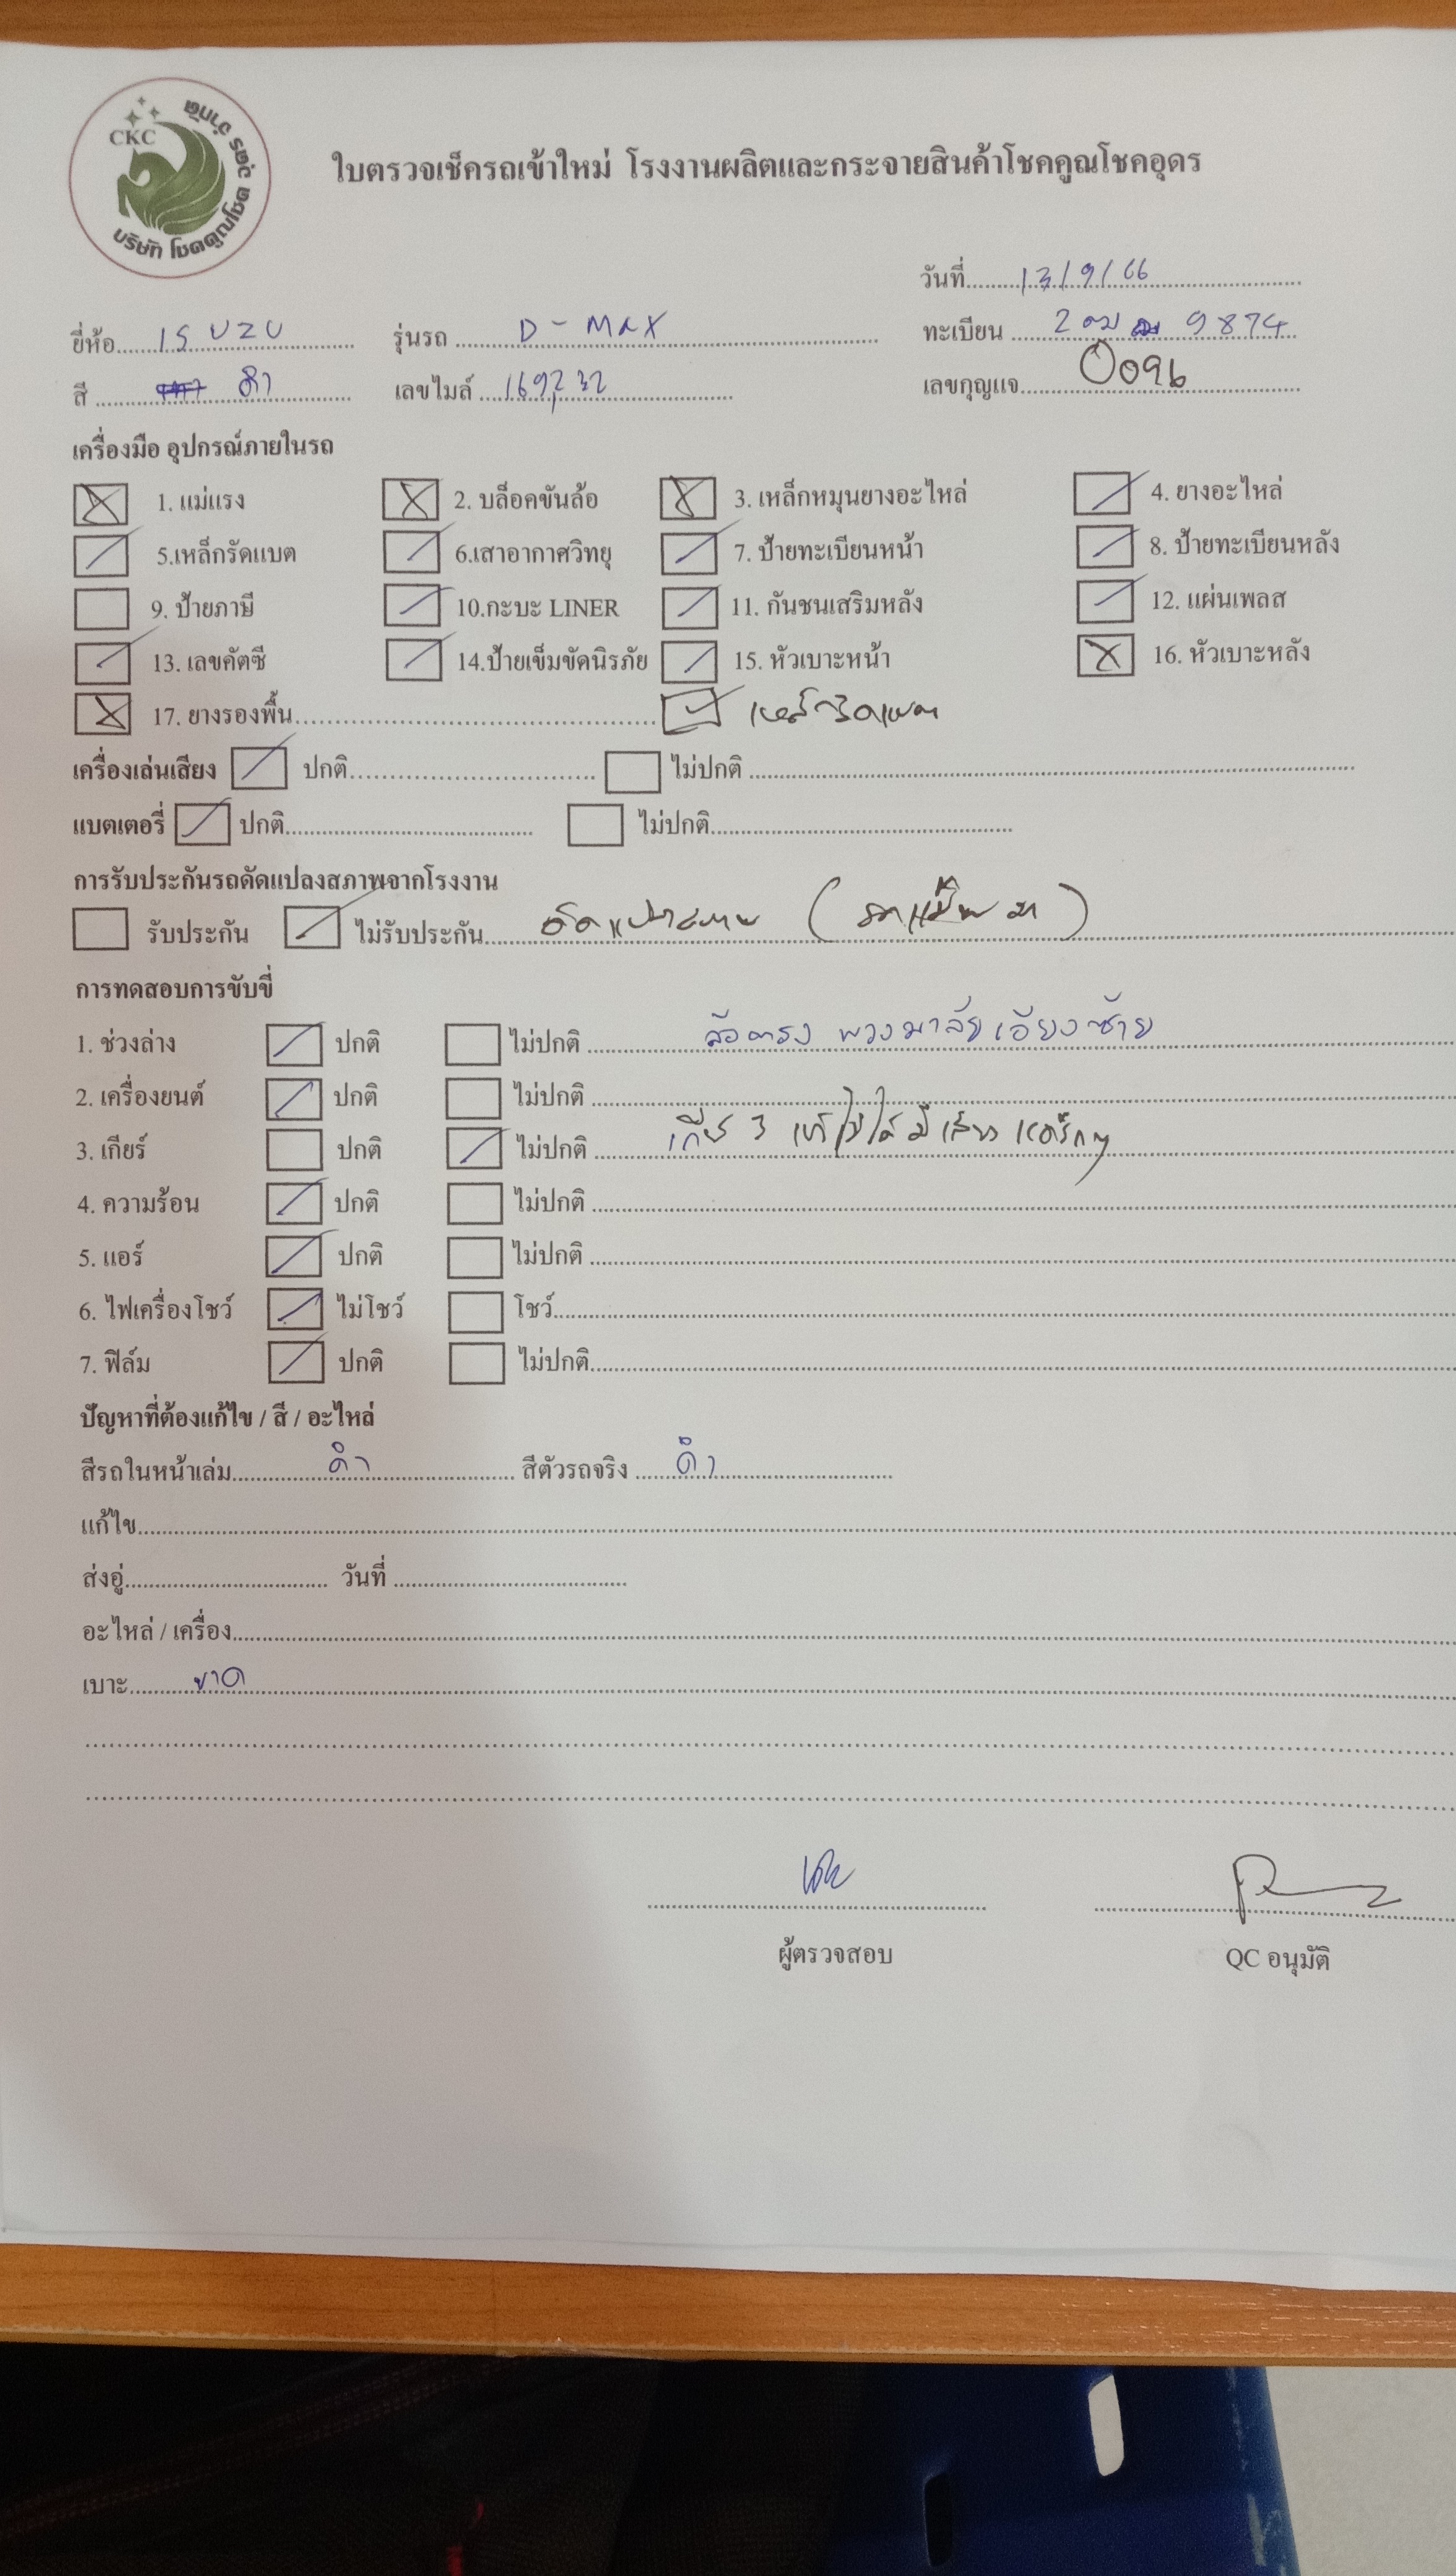 CKC
บริษัท โชคคูณโชค ... จำกัด
ใบตรวจเช็ครถเข้าใหม่ โรงงานผลิตและกระจายสินค้าโชคคูณโชคอุดร
วันที่ 13/9/66
ยี่ห้อ ISUZU รุ่นรถ D-MAX ทะเบียน 2 9874
สี ดำ เลขไมล์ 169,232 เลขกุญแจ 0096
เครื่องมือ อุปกรณ์ภายในรถ
1. แม่แรง 2. บล็อคขันล้อ 3. เหล็กหมุนยางอะไหล่ 4. ยางอะไหล่
5.เหล็กรัดแบต 6.เสาอากาศวิทยุ 7. ป้ายทะเบียนหน้า 8. ป้ายทะเบียนหลัง
9. ป้ายภาษี 10.กะบะ LINER 11. กันชนเสริมหลัง 12. แผ่นเพลส
13. เลขคัตซี 14.ป้ายเข็มขัดนิรภัย 15. หัวเบาะหน้า 16. หัวเบาะหลัง
17. ยางรองพื้น เหล็กรัดแบต
เครื่องเล่นเสียง ปกติ ไม่ปกติ
แบตเตอรี่ ปกติ ไม่ปกติ
การรับประกันรถดัดแปลงสภาพจากโรงงาน
รับประกัน ไม่รับประกัน ดัดแปลงสภาพ
การทดสอบการขับขี่
1. ช่วงล่าง ปกติ ไม่ปกติ ล้อตรง พวงมาลัยเอียงซ้าย
2. เครื่องยนต์ ปกติ ไม่ปกติ
3. เกียร์ ปกติ ไม่ปกติ เกียร์ 3 เข้าไม่ได้ มีเสียง
4. ความร้อน ปกติ ไม่ปกติ
5. แอร์ ปกติ ไม่ปกติ
6. ไฟเครื่องโชว์ ไม่โชว์ โชว์
7. ฟิล์ม ปกติ ไม่ปกติ
ปัญหาที่ต้องแก้ไข / สี / อะไหล่
สีรถในหน้าเล่ม ดำ สีตัวรถจริง ดำ
แก้ไข
ส่งอู่ วันที่
อะไหล่ / เครื่อง
เบาะ ขาด
ผู้ตรวจสอบ QC อนุมัติ